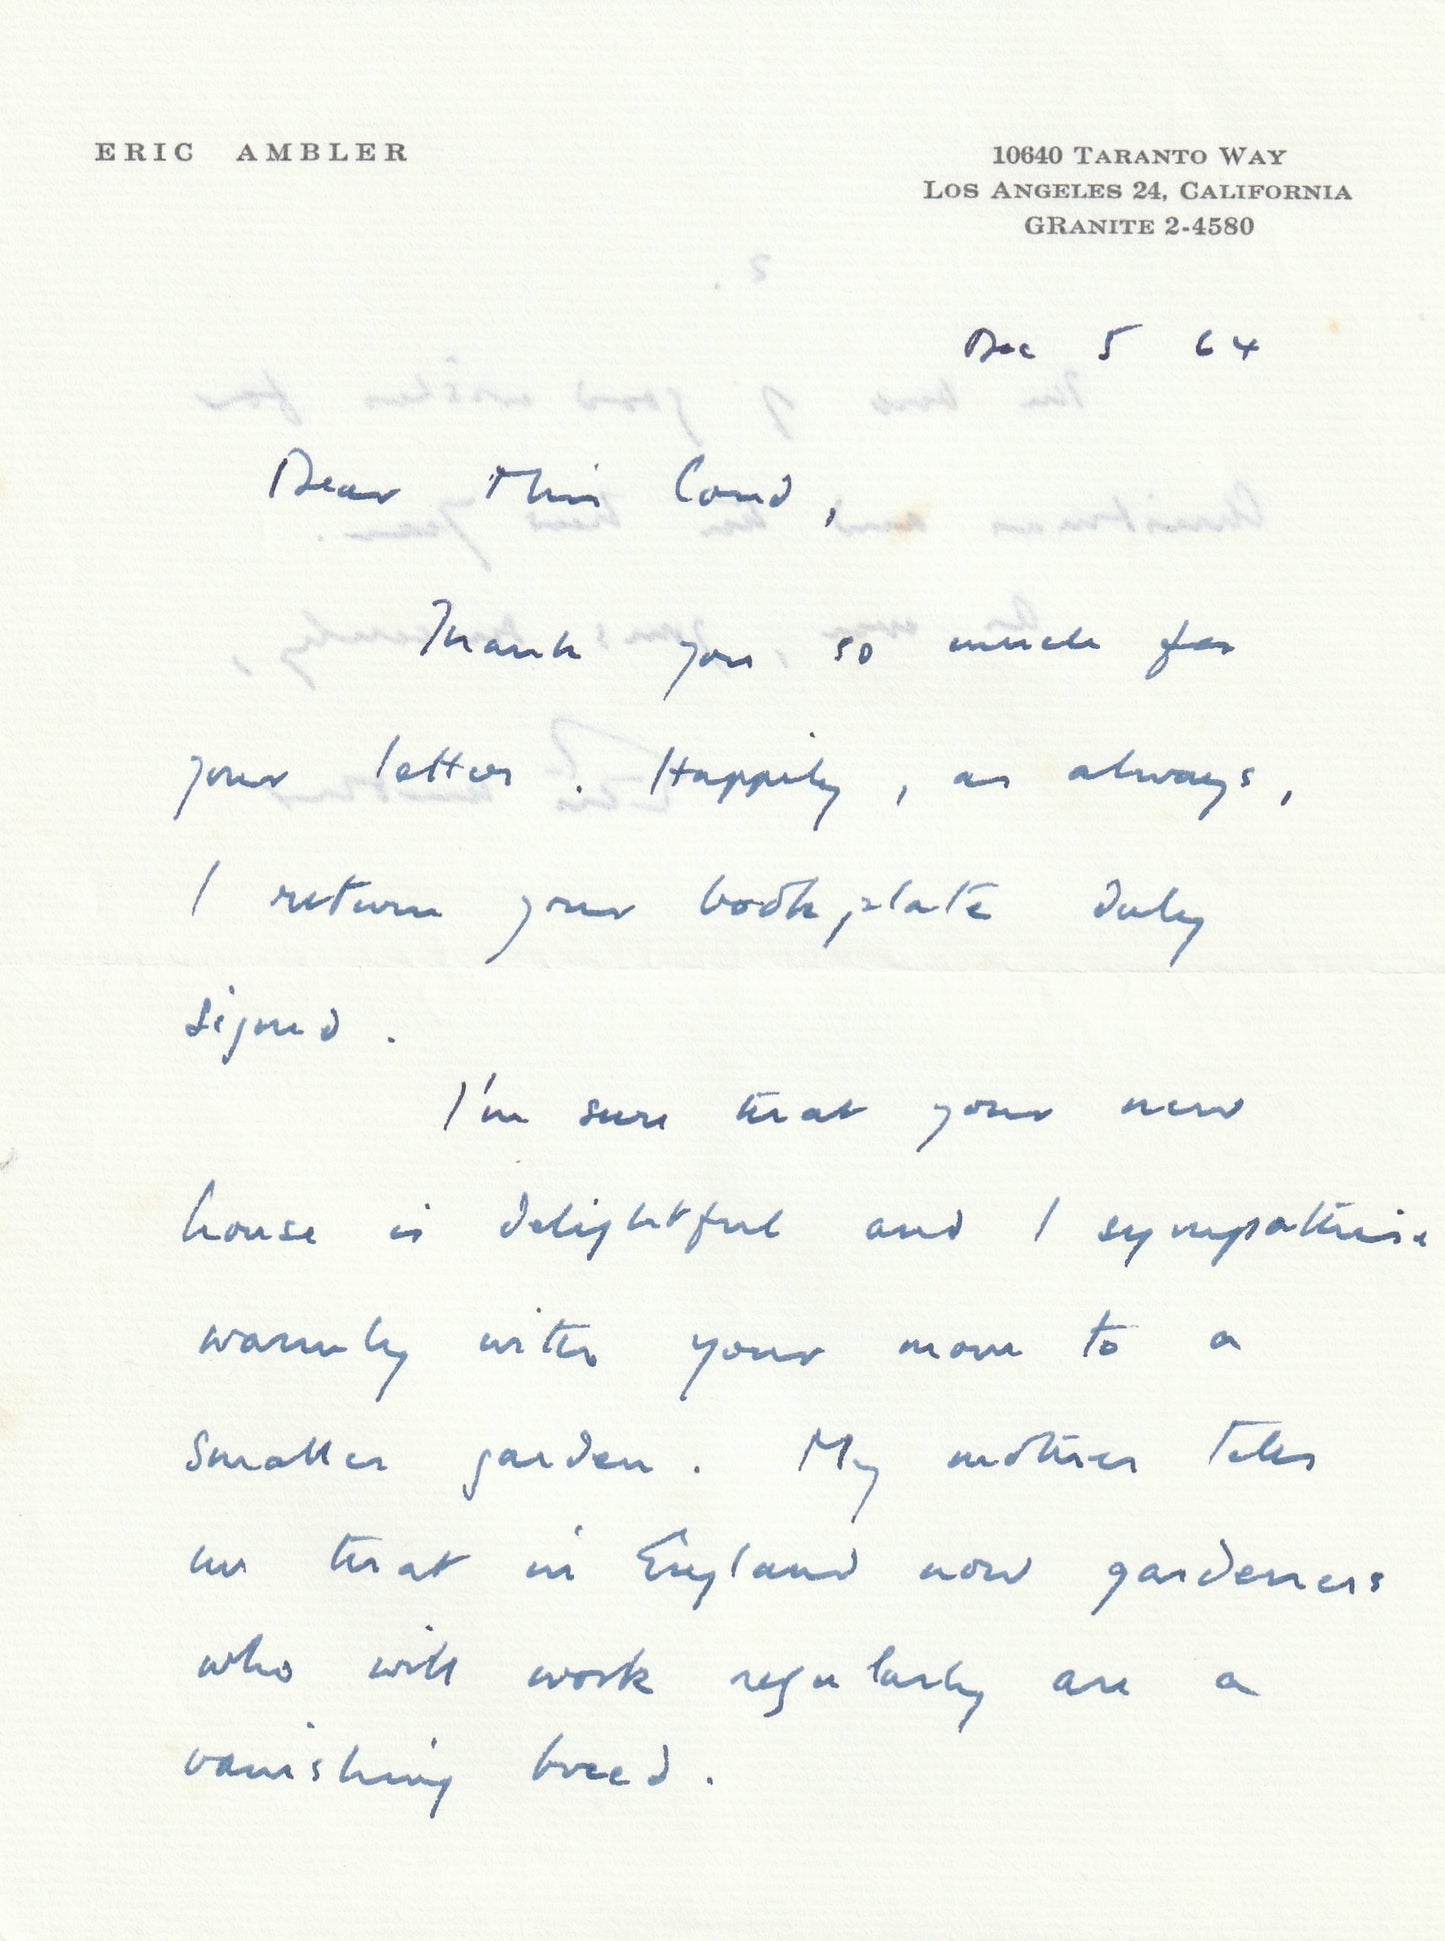 ERIC AMBLER
10640 TARANTO WAY
LOS ANGELES 24, CALIFORNIA
GRANITE 2-4580
2.
Dec 5 64
Dear Miss Coud,
Thank you so much for
your letter. Happily, as always,
I return your bookplate duly
signed.
I'm sure that your new
house is delightful and I sympathise
warmly with your move to a
smaller garden. My mother tells
me that in England now gardeners
who will work regularly are a
vanishing breed.